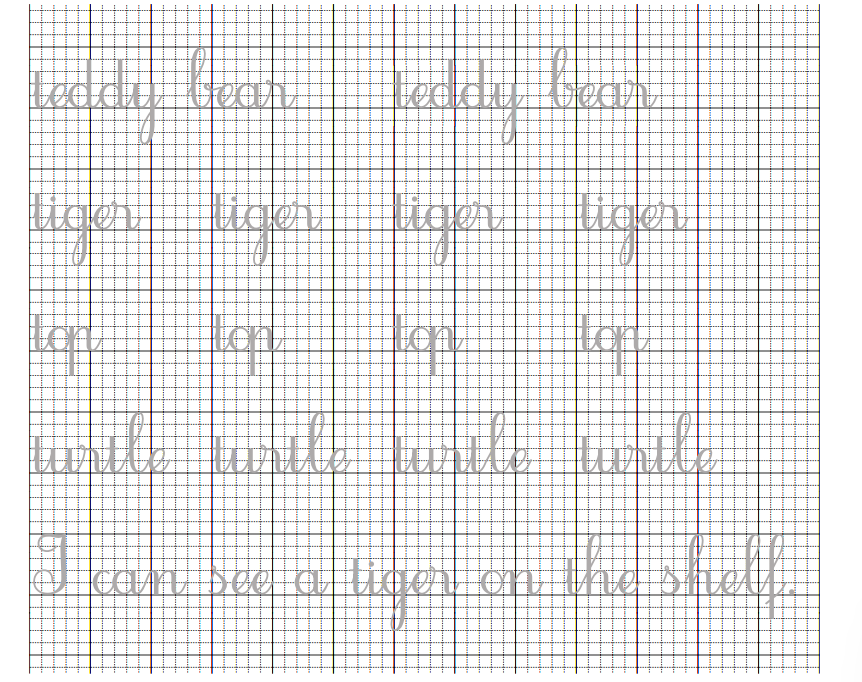 teddy bear teddy bear
tiger tiger tiger tiger
top top top top
turtle turtle turtle turtle
I can see a tiger on the shelf.